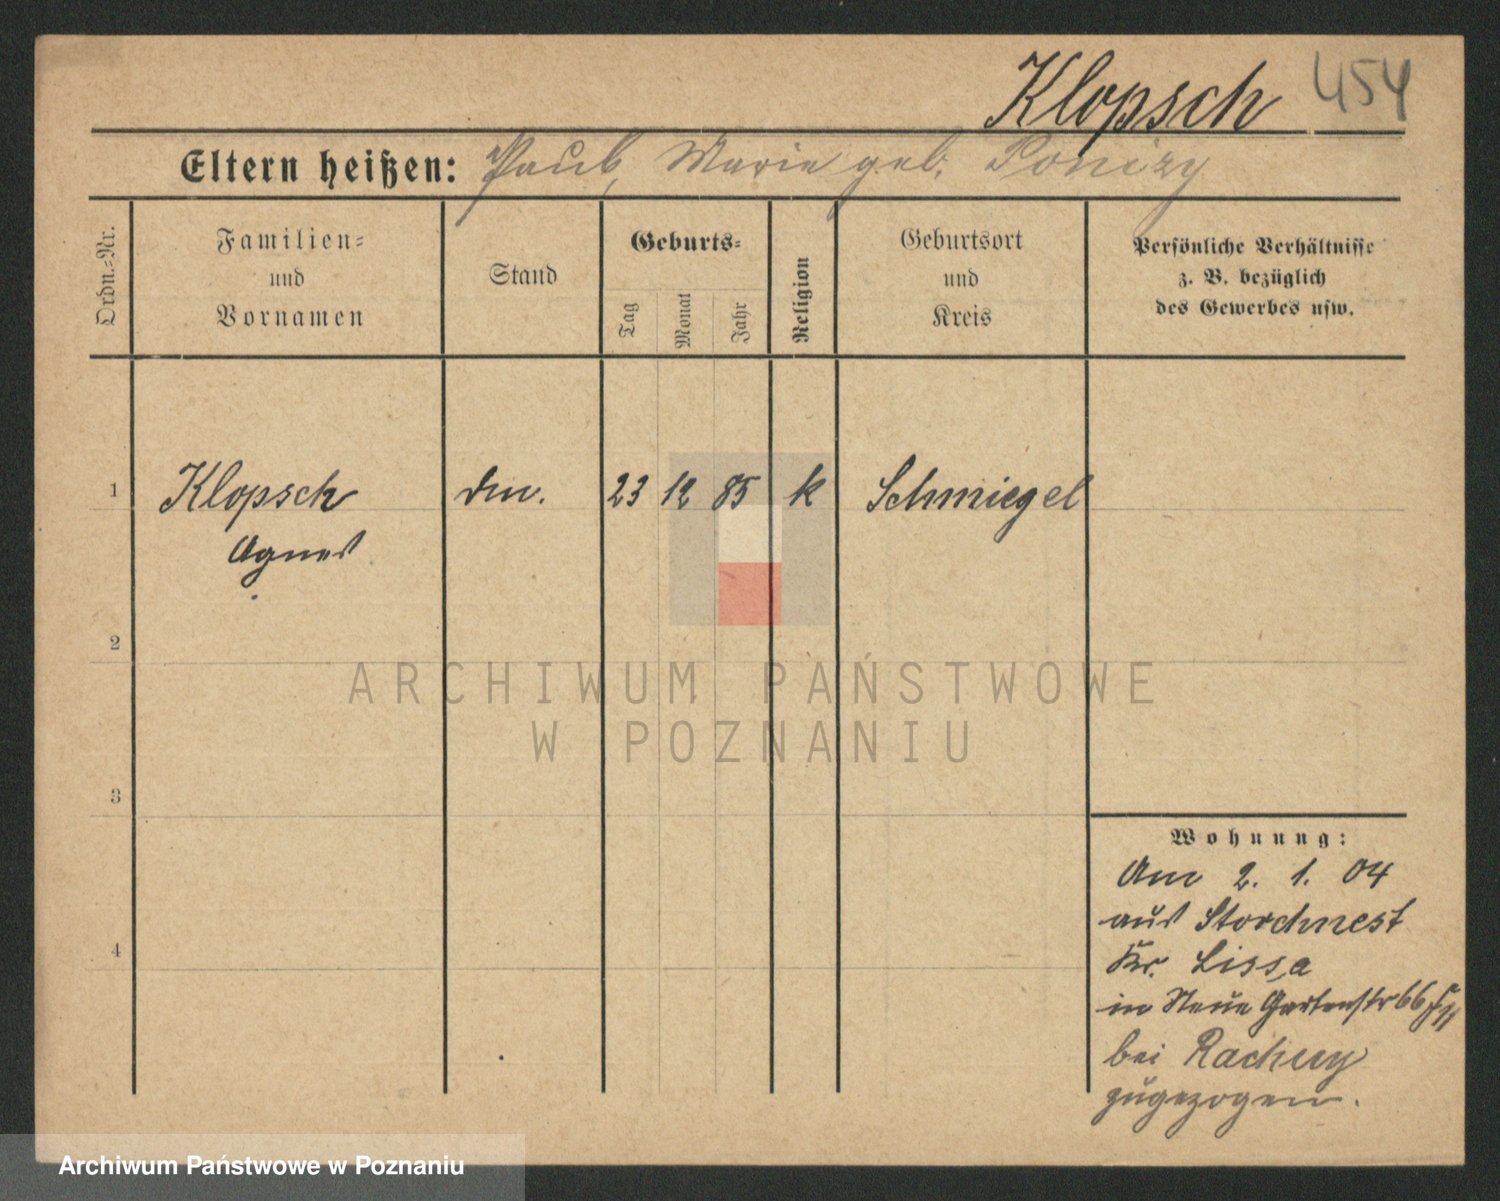 Klopsch 454
Eltern heißen: Paul, Marie geb. Ponizy
Ordn.-Nr.
Familien-
und
Vornamen
Stand
Geburts-
Tag
Monat
Jahr
Religion
Geburtsort
und
Kreis
Persönliche Verhältnisse
z. B. bezüglich
des Gewerbes usw.
1 Klopsch 23 12 85 k Schmiegel
Agnes
2
3
4
ARCHIWUM PAŃSTWOWE
W POZNANIU
Wohnung:
Am 2. 1. 04
aus Storchnest
Kr. Lissa
in Neue Gartenstr 66
bei
zugezogen.
Archiwum Państwowe w Poznaniu